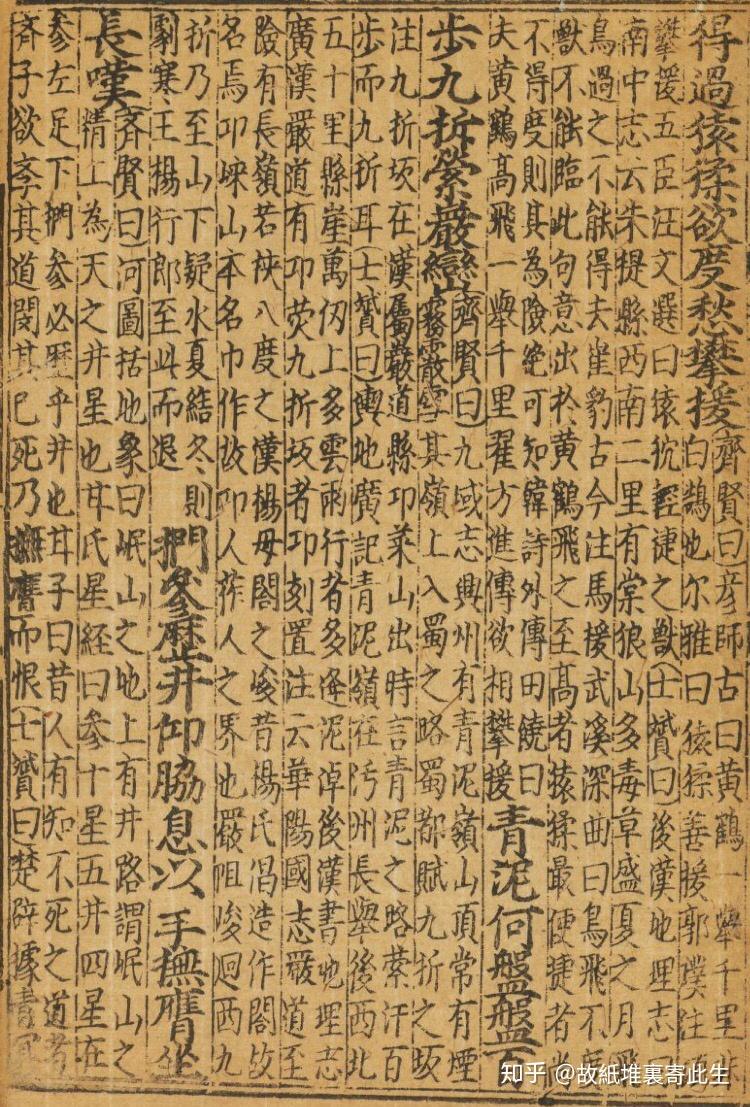 得過猿猱欲度愁攀援齊賢曰彦師古曰黃鶴一舉千里非
白鵠也尔雅曰猿猱善援郭璞注便
攀援五臣注文選曰猿狖輕捷之獸士贇曰後漢地理志曰
南中志云朱提縣西南二里有棠狼山多毒草盛夏之月飛
鳥過之不能得去崔豹古今注馬援武溪深曲曰鳥飛不度
獸不能臨此句意出於黃鶴飛之至高者猿猱最便捷者尚
不得度則其為險絶可知韓詩外傳田饒曰
夫黃鶴高飛一舉千里翟方進傳欲相攀援
青泥何盤盤百
歩九折縈巖巒齊賢曰九域志興州有青泥嶺山頂常有煙
霧霰雪其嶺上入蜀之路蜀都賦九折之坂
注九折坂在漢屬嚴道縣邛萊山出時言青泥之路縈汙百
歩而九折耳士贇曰輿地廣記青泥嶺在沔州長舉後西北
五十里縣崖萬仞上多雲雨行者多逢泥淖後漢書地理志
廣漢嚴道有邛熒九折坂者邛刻置注云華陽國志嚴道至
險有長嶺若棟八度之漢楊母閣之峻昔楊氏倡造作閣故
名焉邛崍山本名巾作故邛人莋人之界也嚴阻峻迴西九
折乃至山下疑水夏結冬則
劇寒王楊行郎至此而退
捫參歷井仰脇息以手撫膺坐
長嘆齊賢曰河圖括地象曰岷山之地上有井路謂岷山之
精上為天之井星也甘氏星経曰參十星五井四星在
參左足下捫參必歷乎井也甘子曰昔人有知不死之道者
齊子欲李其道聞其已死乃撫膺而恨士贇曰楚辭據青冥
知乎 @故紙堆裏寄此生